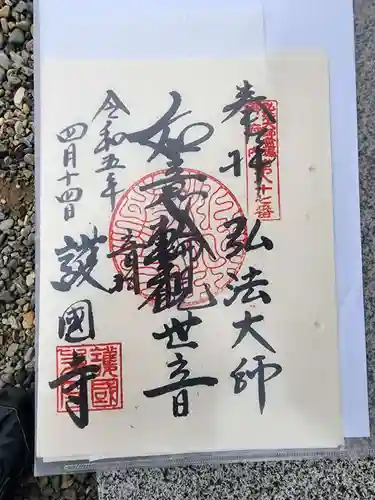 奉拝
弘法大師
如意輪観世音
音羽
令和五年
四月十四日
護國寺